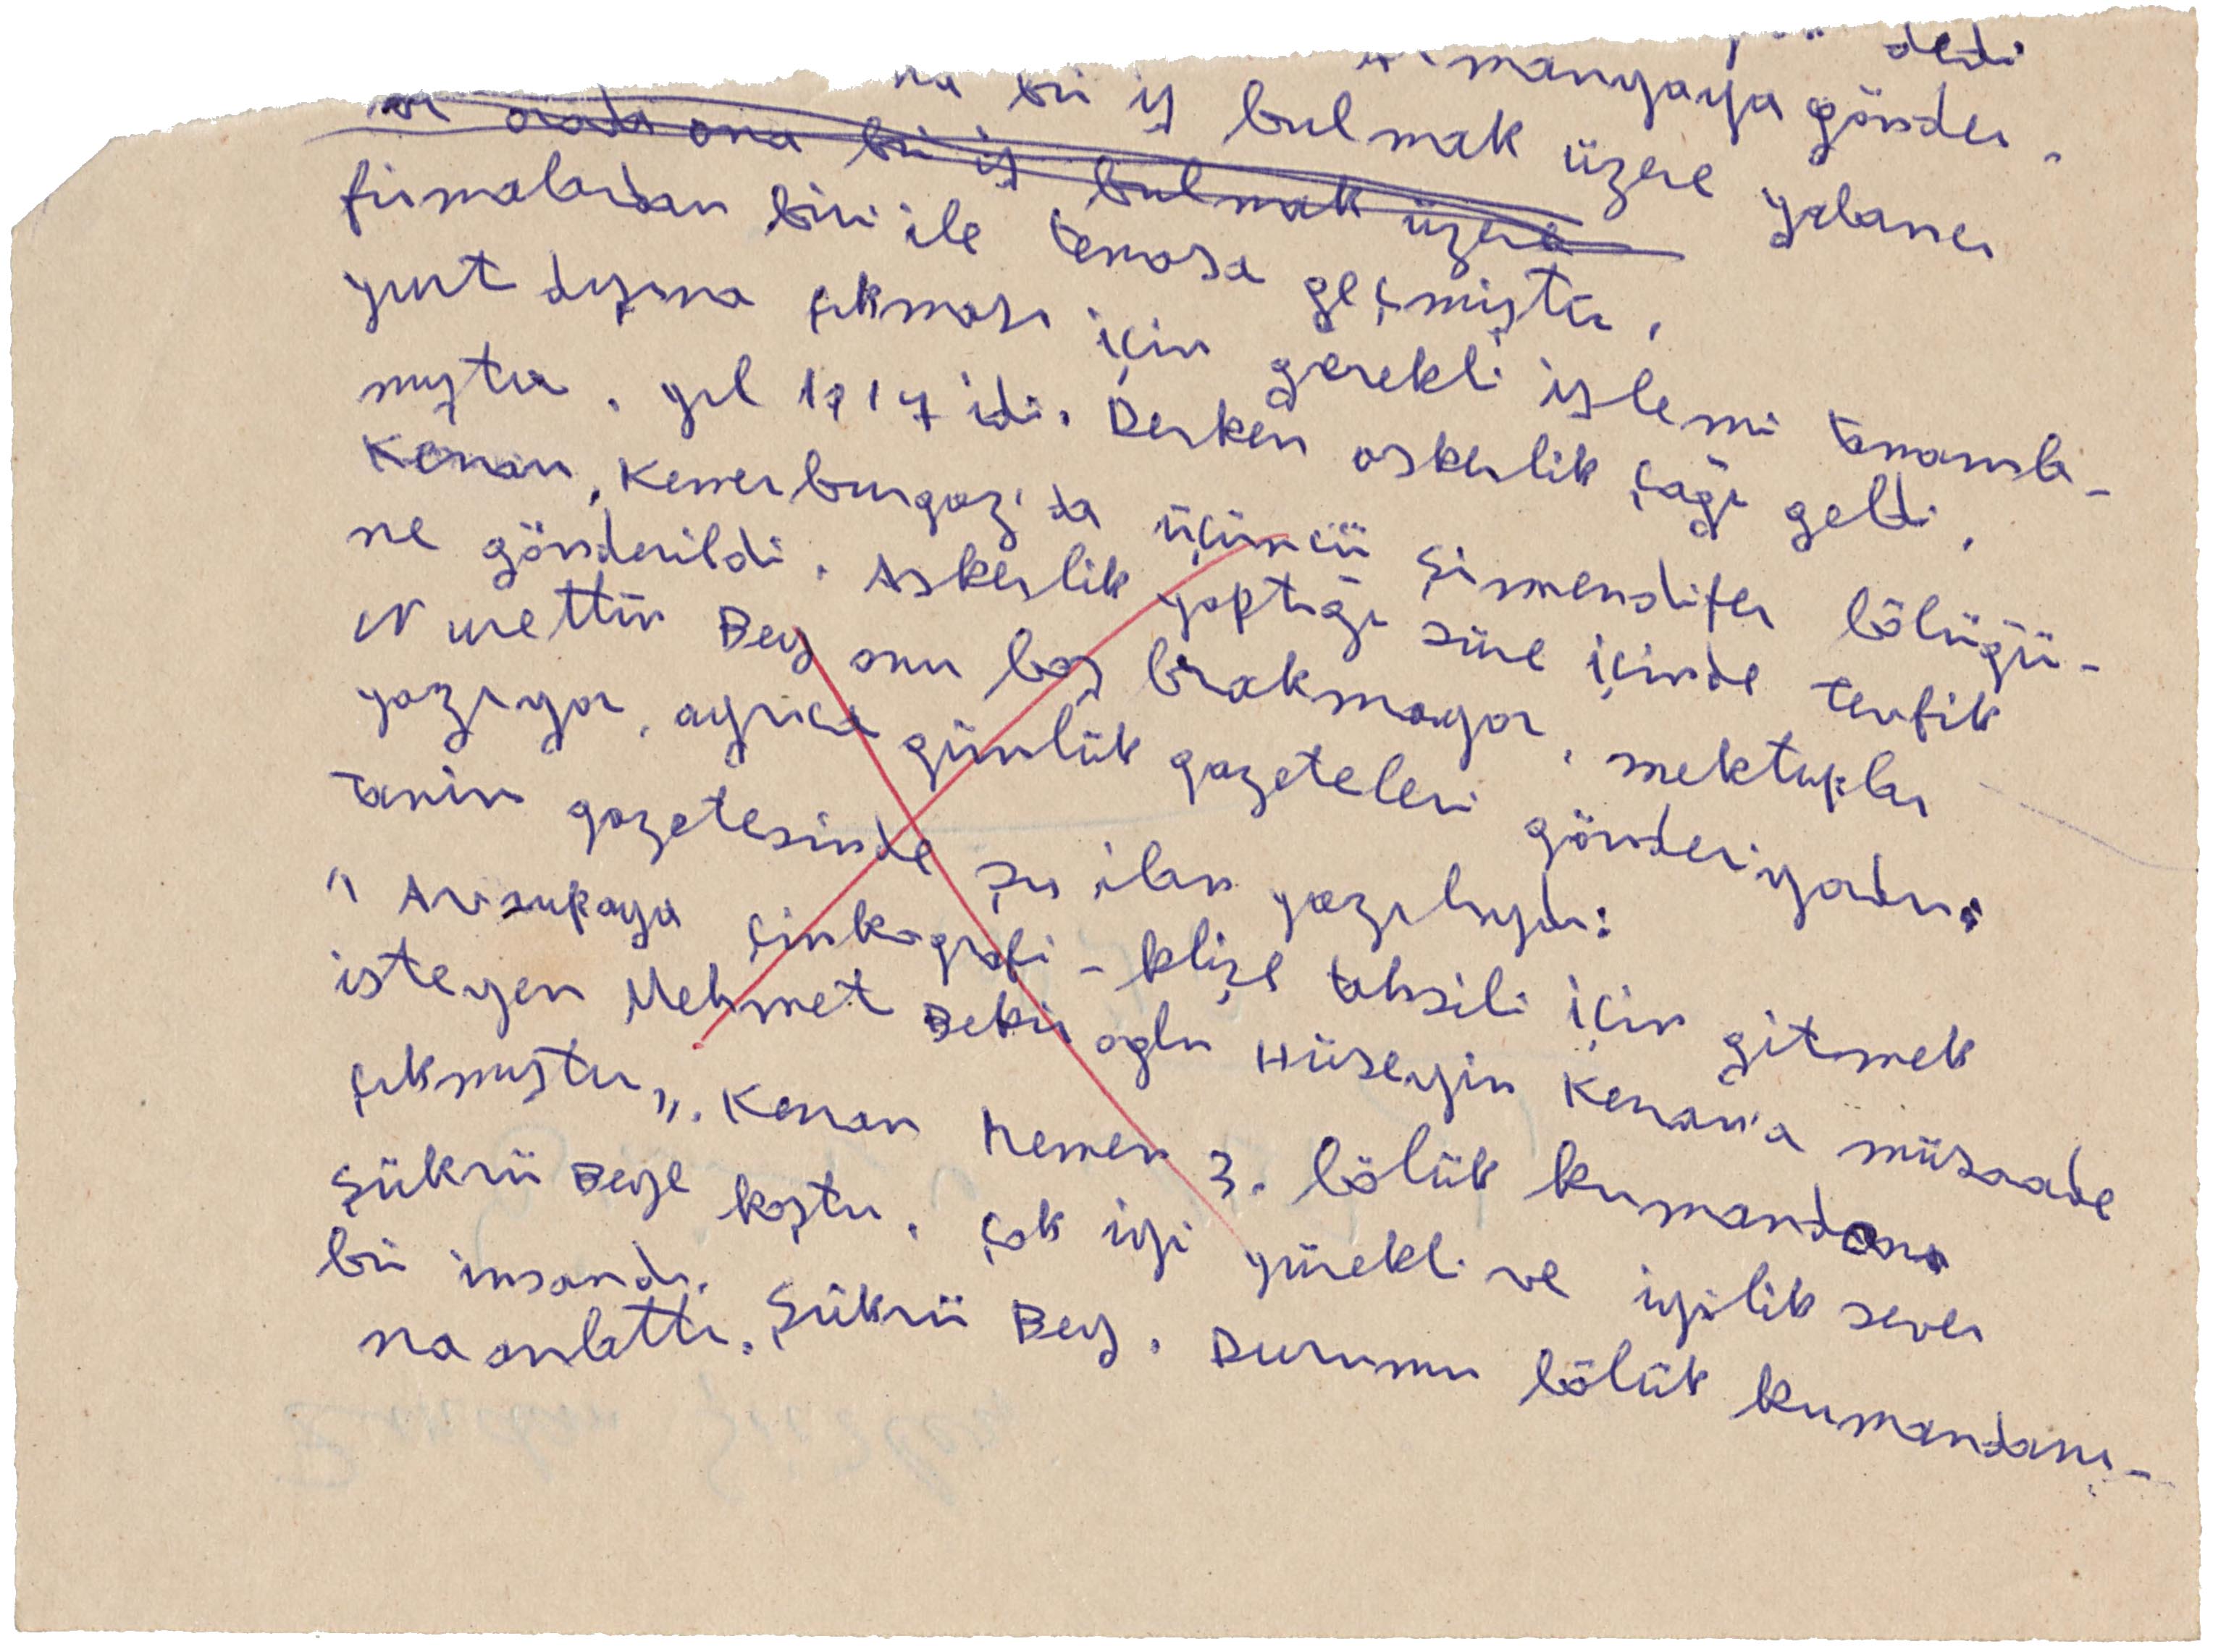 dedi
manyaya gönder.
na bir iş bulmak üzere yabancı
ve orada ona bir iş bulmak üzere
firmalardan biri ile temasa geçmiştir.
yurt dışına çıkması için gerekli işlemi tamamla-
mıştır. yıl 1917 idi. Derken askerlik çağı geldi,
Kenan, Kemerburgaz'da üçüncü Şimendifer bölüğü-
ne gönderildi. Askerlik yaptığı süre içinde Tevfik
Nurettin Bey onu boş bırakmayor, mektuplar
yazıyor, ayrıca günlük gazeteleri gönderiyordu.
Tanin gazetesinde şu ilan yazılıydı:
"Avrupaya çinkografi - klişe tahsili için gitmek
isteyen Mehmet Bekir oğlu Hüseyin Kenan'a müsaade
çıkmıştır". Kenan hemen 3. bölük kumandanı
Şükrü Beye koştu. Çok iyi yürekli ve iyilik sever
bir insandı. Şükrü Bey. Durumu bölük kumandanı-
na anlattı.